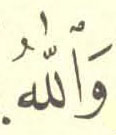 وَٱللَّهُ.